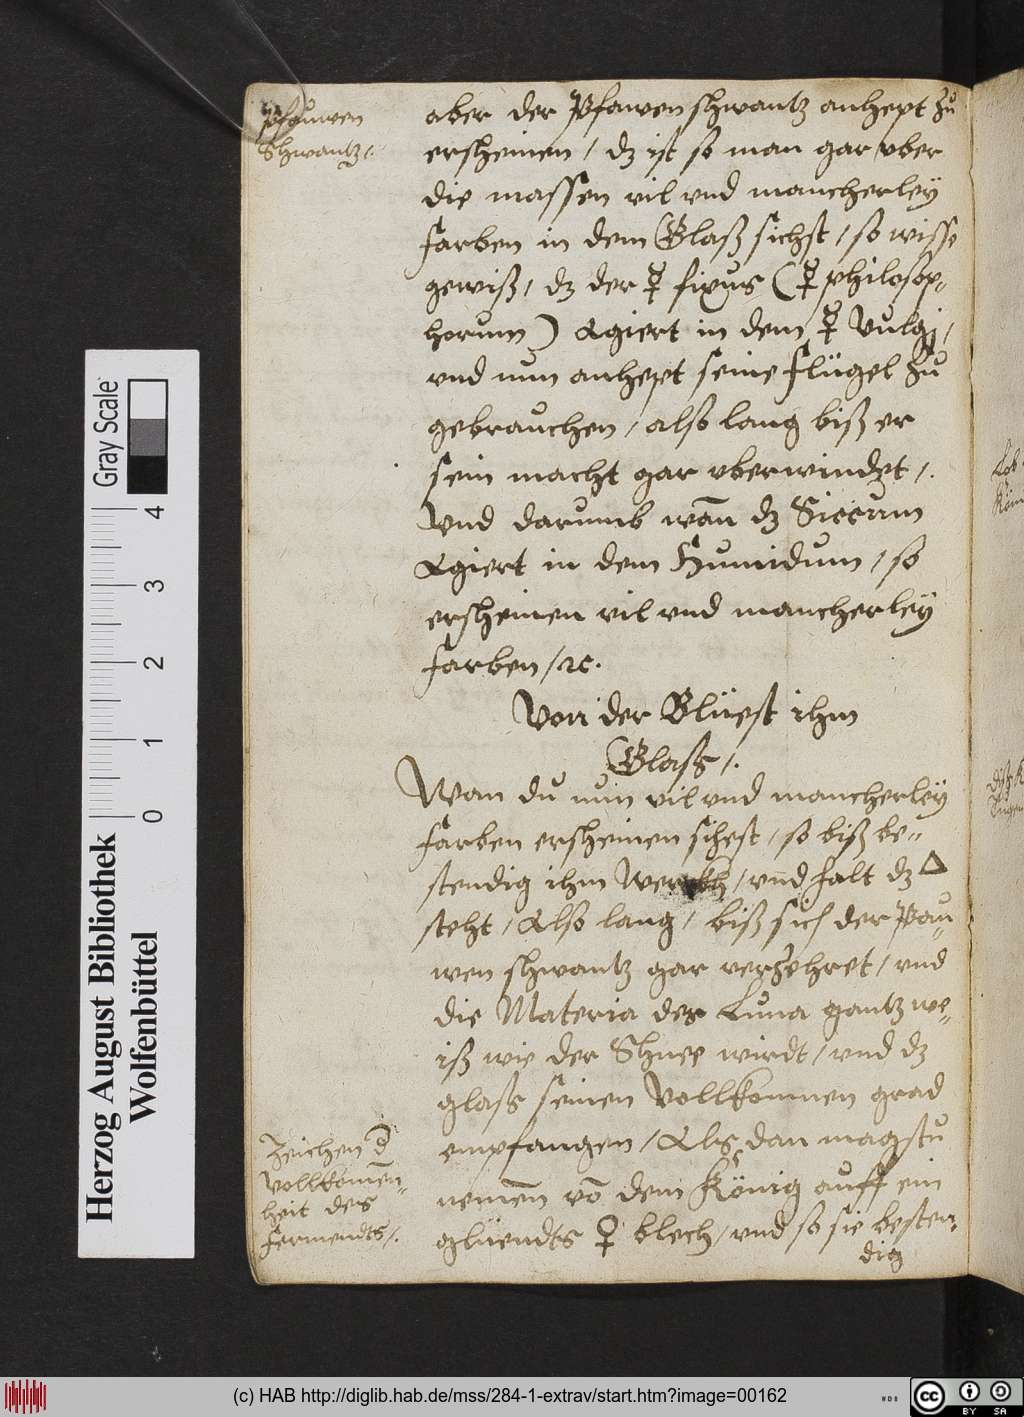 Pfauwen
Schwantz /.
aber der Pfawen schwantz anhept zu
erscheinen / dz ist so man gar vber
die massen vil vnd mancherley
farben in dem Glaß sichst / so wisse
gewiß / dz der ☿ fixus (☿ philosop=
horum) Agiert in dem ☿ Vulgj /
vnd nun anhept seine flügel zu
gebrauchen / also lang biß er
sein macht gar vberwindet /.
Vnd darumb wañ dz Siccum
Agiert in dem Humidum / so
erscheinen vil vnd mancherley
farben / ꝛc.
Von der Blüest ihm
Glaß /.
Wan du nun vil vnd mancherley
farben erscheinen sihest / so biß be=
stendig ihm Werckh / vnd halt dz △
steht / Also lang / biß sich der Pau=
wen schwantz gar verzehret / vnd
die Materia der Luna gantz we=
iß wie der Schnee wirdt / vnd dz
glaß seinen Vollkomen grad
empfangen / Als dan magstu
nemen võ dem König auff ein
glüendts ♀ blech / vnd so sie besten=
dig
Zeichen d
Vollkomen=
heit des
fermendts /.
Gray Scale
0 1 2 3 4
Herzog August Bibliothek
Wolfenbüttel
(c) HAB http://diglib.hab.de/mss/284-1-extrav/start.htm?image=00162
cc BY SA